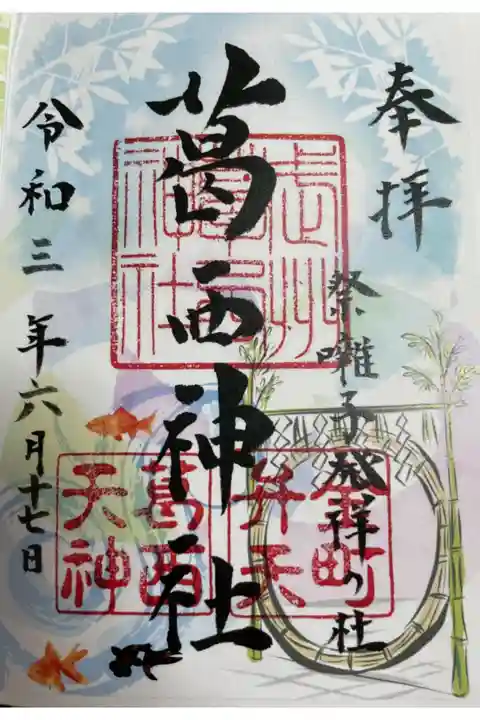 奉拝
祭囃子発祥の社
葛西神社
令和三年六月十七日
武州
葛西
神社
金町
弁天
葛西
天神